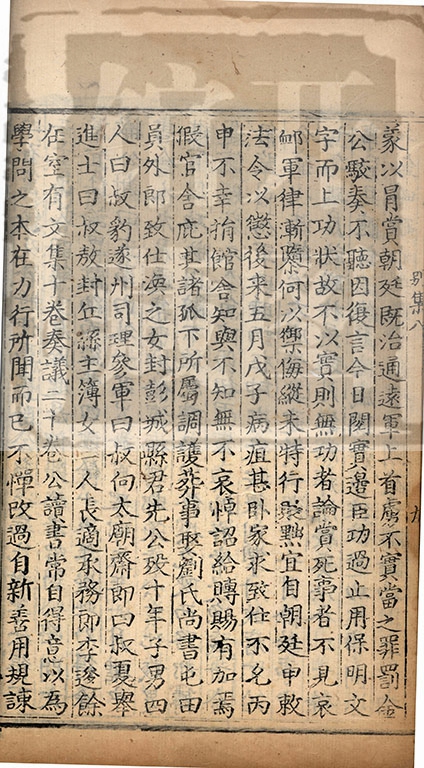 別集八
九
篆以冐賞朝廷既治通遠軍上首虜不實當之罪罰金
公駮奏不聽因復言今日閱實邉臣功過止用保明文
字而上功狀故不以實則無功者論賞死事者不見哀
䘏軍律漸隳何以禦侮縱未特行貶黜宜自朝廷申敕
法令以懲後来五月戊子病疽甚卧家求致仕不允丙
申不幸捐館舎知與不知無不哀悼詔給賻賜有加焉
假官舎庇其諸孤下所屬調護葬事娶劉氏尚書屯田
員外郎致仕渙之女封彭城縣君先公殁十年子男四
人曰叔豹遂州司理參軍曰叔向太廟齋郎曰叔夏舉
進士曰叔敖封丘縣主簿女二人長適承務郎李逡餘
在室有文集十巻奏議二十巻公讀書常自得意以為
學問之本在力行所聞而已不憚改過自新善用諫